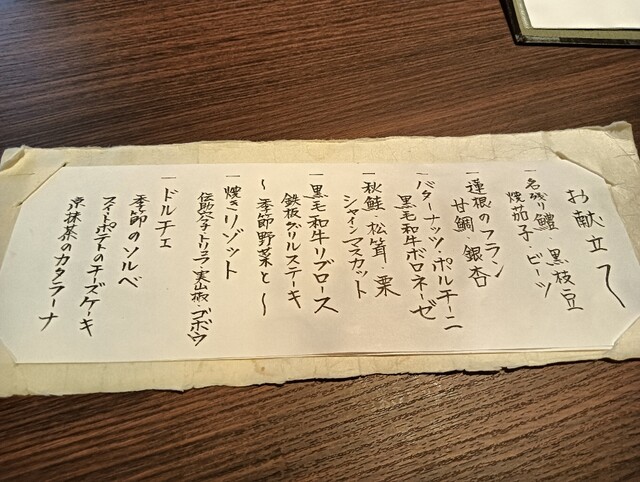 お献立て
一 名残り鱧・黒枝豆
焼茄子・ビーツ
一 蓮根のフラン
甘鯛・銀杏
一 バターナッツ・ポルチーニ
黒毛和牛ボロネーゼ
一 秋鮭 松茸・栗
シャインマスカット
一 黒毛和牛リブロース
鉄板グリルステーキ
〜季節野菜と〜
一 焼きリゾット
伝助穴子・トリュフ・実山椒・ゴボウ
一 ドルチェ
季節のソルベ
スイートポテトのチーズケーキ
京抹茶のカタラーナ